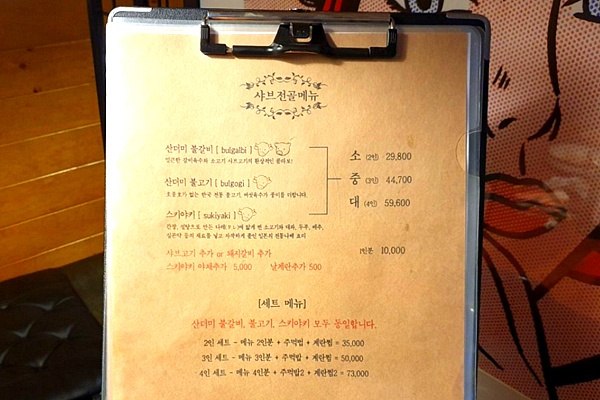 샤브전골메뉴
산더미 불갈비 [ bulgalbi ]
소 (2인) 29,800
산더미 불고기 [ bulgogi ]
중 (3인) 44,700
대 (4인) 59,600
스키야키 [ sukiyaki ]
샤브고기 추가 or 돼지갈비 추가 1인분 10,000
스키야키 야채추가 5,000 날계란추가 500
[세트 메뉴]
산더미 불갈비, 불고기, 스키야키 모두 동일합니다.
2인 세트 - 메뉴 2인분 + 주먹밥 + 계란찜 = 35,000
3인 세트 - 메뉴 3인분 + 주먹밥 + 계란찜 = 50,000
4인 세트 - 메뉴 4인분 + 주먹밥2 + 계란찜2 = 73,000